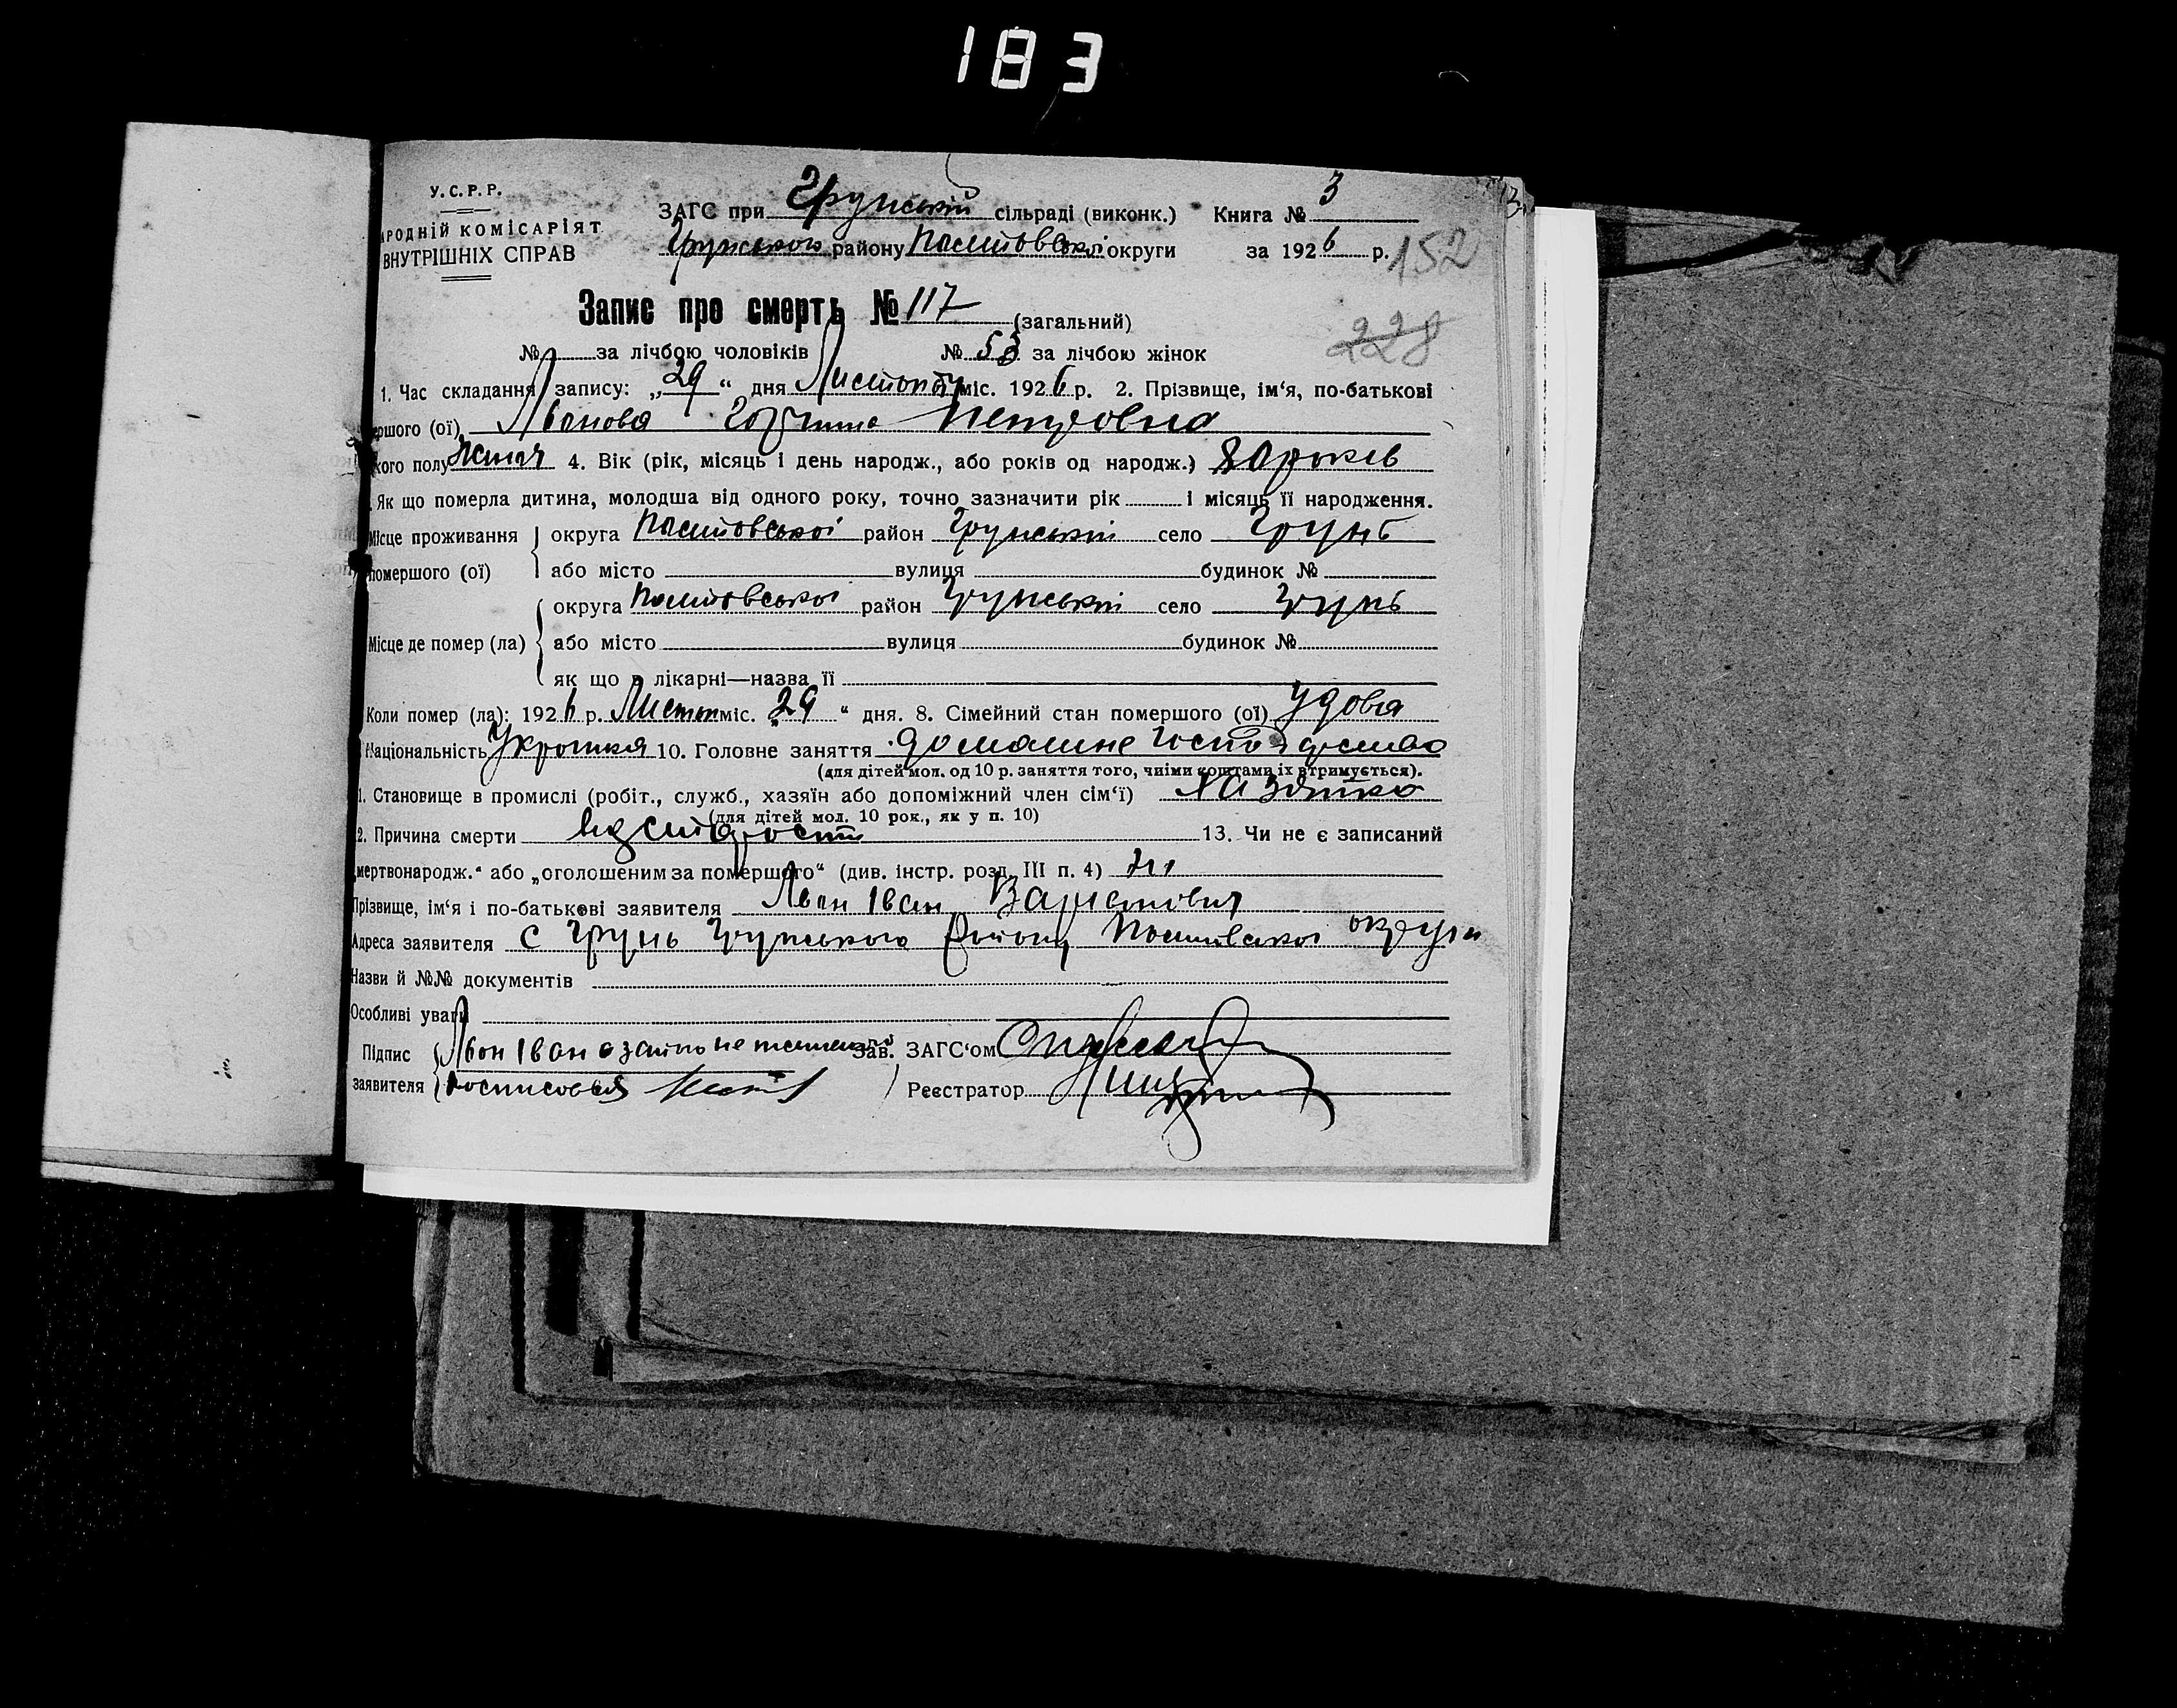 183
У.С.Р.Р.
РОДНІЙ КОМІСАРІЯТ
ВНУТРІШНІХ СПРАВ
ЗАГС при Грунській сільраді (виконк.) Книга № 3
Грунського району Полтовської округи за 1926 р. 152
Запис про смерть № 117 (загальний)
228
№ за лічбою чоловіків № 53 за лічбою жінок
1. Час складання запису: „29“ дня Листопад міс. 1926 р. 2. Прізвище, ім‘я, по-батькові
ршого (ої) Петровна
кого полу жіноч 4. Вік (рік, місяць і день народж., або років од народж.) 80 років
Як що померла дитина, молодша від одного року, точно зазначити рік і місяць її народження.
Місце проживання округа Полтовської район Грунській село Грунь
помершого (ої) або місто вулиця будинок №
округа Полтовської район Грунській село Грунь
Місце де помер (ла) або місто вулиця будинок №
як що в лікарні—назва її
Коли помер (ла): 1926 р. Листоп міс. „29“ дня. 8. Сімейний стан помершого (ої) удова
Національність Укроїнка 10. Головне заняття домашне господарство
(для дітей мол. од 10 р. заняття того, чиїми коштами їх втримується).
1. Становище в промислі (робіт., служб., хазяїн або допоміжний член сім‘ї) Хазяйка
(для дітей мол. 10 рок., як у п. 10)
2. Причина смерти від старости 13. Чи не є записаний
„мертвонародж.“ або „оголошеним за помершого“ (див. інстр. розд. III п. 4) ні
Прізвище, ім‘я і по-батькові заявителя Іван
Адреса заявителя с Грунь Грунського району Полтовської округи
Назви й №№ документів
Особливі уваги
Підпис Іван а за його неписьмен Зав. ЗАГС‘ом
заявителя росписовся Реєстратор